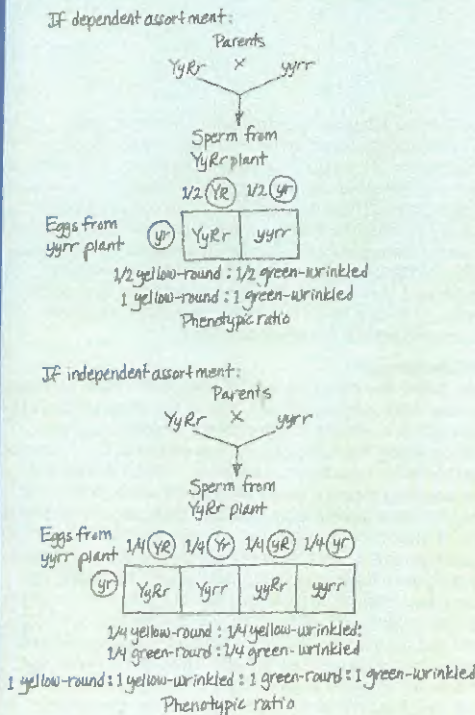 If dependent assortment:
Parents
YyRr × yyrr
Sperm from
YyRr plant
1/2 YR 1/2 yr
Eggs from
yyrr plant yr YyRr yyrr
1/2 yellow-round : 1/2 green-wrinkled
1 yellow-round : 1 green-wrinkled
Phenotypic ratio
If independent assortment:
Parents
YyRr × yyrr
Sperm from
YyRr plant
Eggs from
yyrr plant 1/4 YR 1/4 Yr 1/4 yR 1/4 yr
yr YyRr Yyrr yyRr yyrr
1/4 yellow-round : 1/4 yellow-wrinkled :
1/4 green-round : 1/4 green-wrinkled
1 yellow-round : 1 yellow-wrinkled : 1 green-round : 1 green-wrinkled
Phenotypic ratio